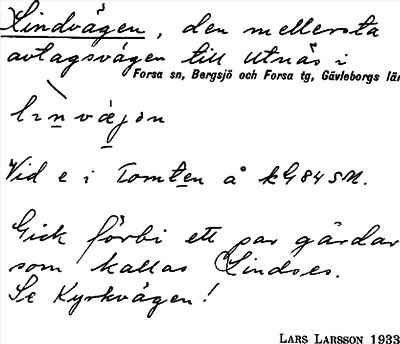 Lindvägen, den mellersta
avtagsvägen till Utnäs i
Forsa sn, Bergsjö och Forsa tg, Gävleborgs län
Vid e i Tomten å kG84SM.
Gick förbi ett par gårdar
som kallas Lindses.
Se Kyrkvägen!
LARS LARSSON 1933